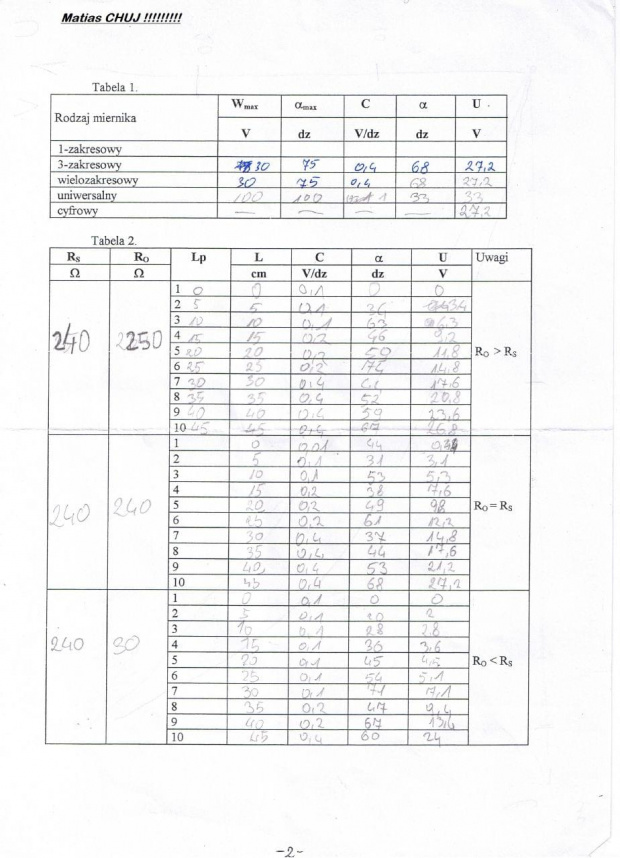 Matias CHUJ !!!!!!!!!
Tabela 1.
Rodzaj miernika Wmax αmax C α U
V dz V/dz dz V
1-zakresowy
3-zakresowy 30 75 0,4 68 27,2
wielozakresowy 30 75 0,4 68 27,2
uniwersalny 100 100 1 33 33
cyfrowy — — — — 27,2
Tabela 2.
RS RO Lp L C α U Uwagi
Ω Ω cm V/dz dz V
1 0 0 0,1 0 0
2 5 5 0,1 34 3,4
3 10 10 0,1 63 6,3
240 2250 4 15 15 0,2 46 9,2
5 20 20 0,2 59 11,8 RO > RS
6 25 25 0,2 74 14,8
7 30 30 0,4 17,6
8 35 35 0,4 52 20,8
9 40 40 0,4 59 23,6
10 45 45 0,4 67 26,8
1 0 0,01 44
2 5 0,1 31 3,1
3 10 0,1 53 5,3
4 15 0,2 38 7,6
240 240 5 20 0,2 49 98 RO = RS
6 25 0,2 61 12,2
7 30 0,4 37 14,8
8 35 0,4 44 17,6
9 40 0,4 53 21,2
10 45 0,4 68 27,2
1 0 0,1 0 0
2 5 0,1 20 2
3 10 0,1 28 2,8
240 30 4 15 0,1 36 3,6
5 20 0,1 45 4,5 RO < RS
6 25 0,1 54 5,1
7 30 0,1 71 7,1
8 35 0,2 47 9,4
9 40 0,2 67 13,4
10 45 0,4 60 24
-2-